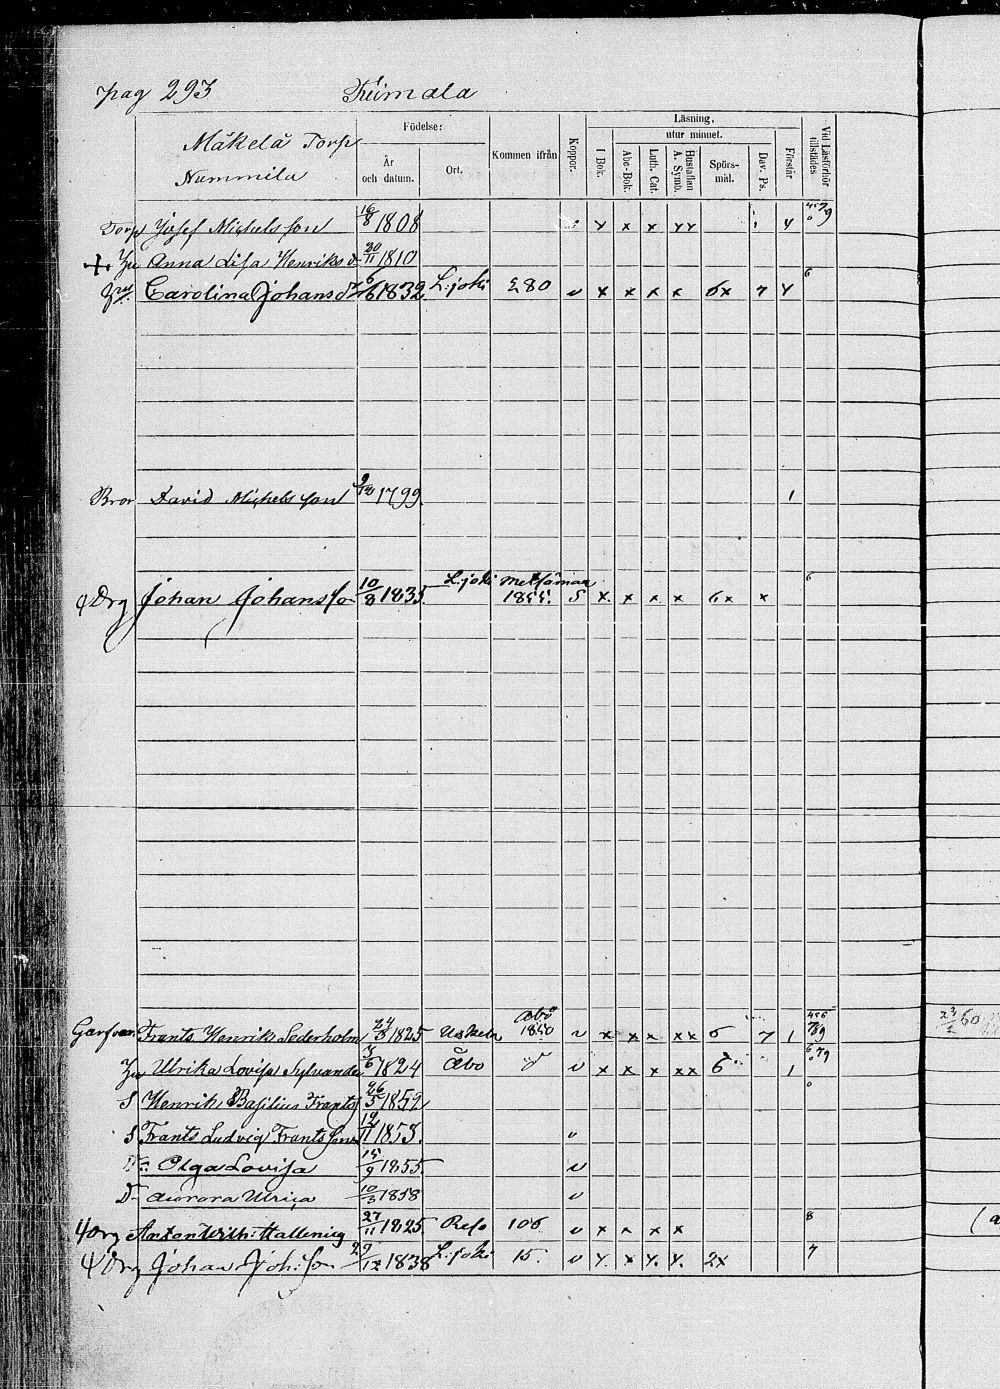 pag 293
Mäkelä Torp
Nummila
Födelse:
År
och datum.
Ort.
Kommen ifrån
Koppor.
Läsning.
utur minnet.
I Bok.
Abc-Bok.
Luth. Cat.
Hustaflan
A. Symb.
Spörs-
mål.
Dav. Ps.
Förstår
Vid Läsförhör
tillstädes
Torp Josef Michelsson 16/8 1808
Hu Anna Lisa Henriksd 1810
Carolina Johansd 1832 L:joki 280 v x x x x 6x 7 y
Bror David Michelsson 1799 1
Drg Johan Johansso 10/8 1835 L:joki 1855. S x x x x 6x x
Frants Henrik Sederholm 1825 Uskela Åbo 1850 v x x x xx 6 7 1
Hu Ulrika Lovisa Sylvander 1824 Åbo v x x x xx 6 1
S Henrik Basilius Frants 26/5 1852
S Frants Ludvig Frantsson 1853. v
Olga Lovisa 15/9 1855. v
D Aurora Ulrica 10/3 1858 v
Drg Anton Wilh: 27/11 1825 Reso 106 v x x x x 8
Drg Johan Joh:son 29/12 1838 L:joki 15. v x x x x 2x 7